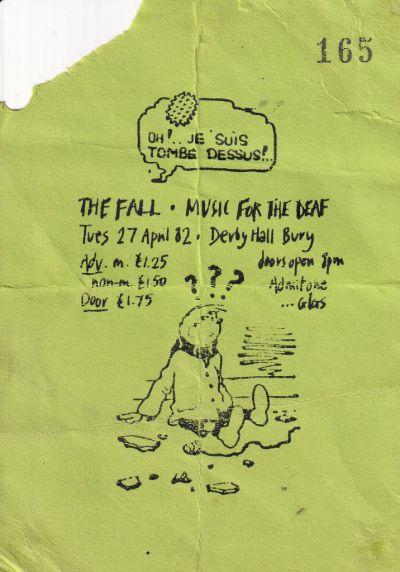 165
OH!.. JE SUIS
TOMBÉ DESSUS!..
THE FALL • MUSIC FOR THE DEAF
Tues 27 April 82 • Derby Hall Bury
Adv. m. £1.25 doors open 8pm
non-m. £1.50 Admit one
Door £1.75 ...
???